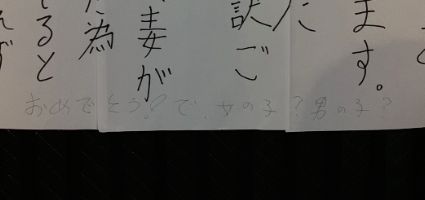 ます。
た
訳ご
妻が
た為
ると
ず
おめでとう!で、女の子?男の子?